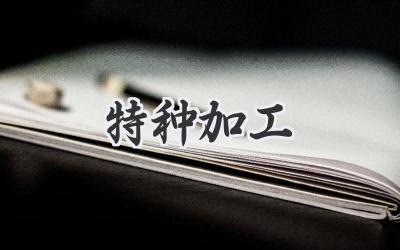 特种加工